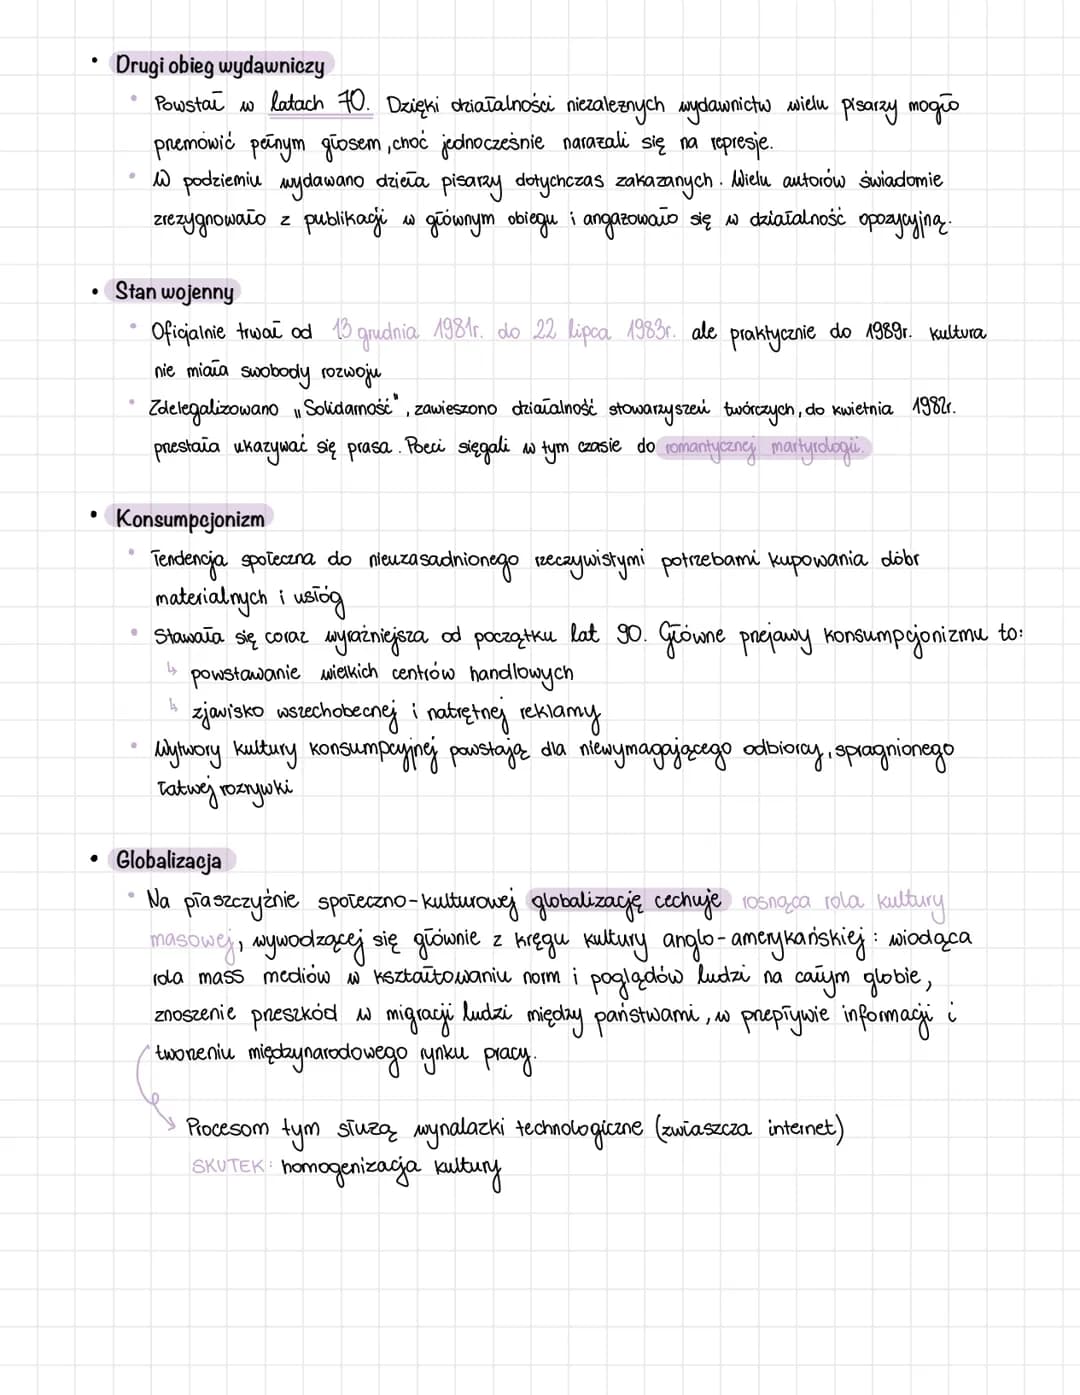 • Drugi obieg wydawniczy
• Powstał w latach 70. Dzięki działalności niezależnych wydawnictw wielu pisarzy mogło
przemówić pełnym głosem, choć jednocześnie narażali się na represje.
• W podziemiu wydawano dzieła pisarzy dotychczas zakazanych. Wielu autorów świadomie
zrezygnowało z publikacji w głównym obiegu i angażowało się w działalność opozycyjną.
• Stan wojenny
• Oficjalnie trwał od 13 grudnia 1981r. do 22 lipca 1983r. ale praktycznie do 1989r. kultura
nie miała swobody rozwoju
• Zdelegalizowano „Solidarność", zawieszono działalność stowarzyszeń twórczych, do kwietnia 1982r.
przestała ukazywać się prasa. Poeci sięgali w tym czasie do romantycznej martyrologii.
• Konsumpcjonizm
• Tendencja społeczna do nieuzasadnionego rzeczywistymi potrzebami kupowania dóbr
materialnych i usług
• Stawała się coraz wyraźniejsza od początku lat 90. Główne przejawy konsumpcjonizmu to:
↳ powstawanie wielkich centrów handlowych
↳ zjawisko wszechobecnej i natrętnej reklamy
• Wytwory kultury konsumpcyjnej powstają dla niewymagającego odbiorcy, spragnionego
łatwej rozrywki
• Globalizacja
• Na płaszczyźnie społeczno-kulturowej globalizację cechuje rosnąca rola kultury
masowej, wywodzącej się głównie z kręgu kultury anglo-amerykańskiej: wiodąca
rola mass mediów w kształtowaniu norm i poglądów ludzi na całym globie,
znoszenie przeszkód w migracji ludzi między państwami, w przepływie informacji i
tworzeniu międzynarodowego rynku pracy.
Procesom tym służą wynalazki technologiczne (zwłaszcza internet)
SKUTEK: homogenizacja kultury